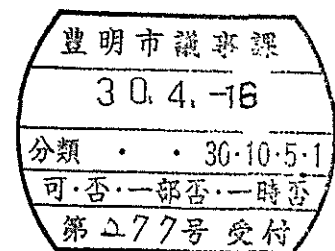 豊明市議事課
30.4.-16
分類 ・ ・ 30・10・5・1
可・否・一部否・一時否
第277号 受付